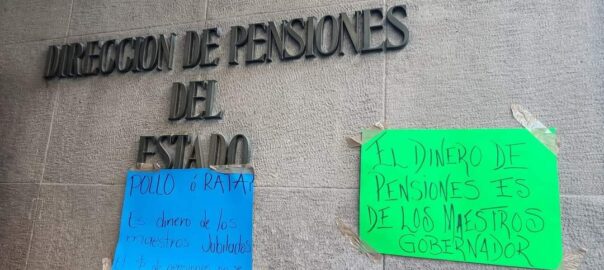 DIRECCION DE PENSIONES
DEL
ESTADO
POLLO ó RATA?
Es dinero de los
maestros Jubilados
EL DINERO DE
PENSIONES ES
DE LOS MAESTROS
GOBERNADOR